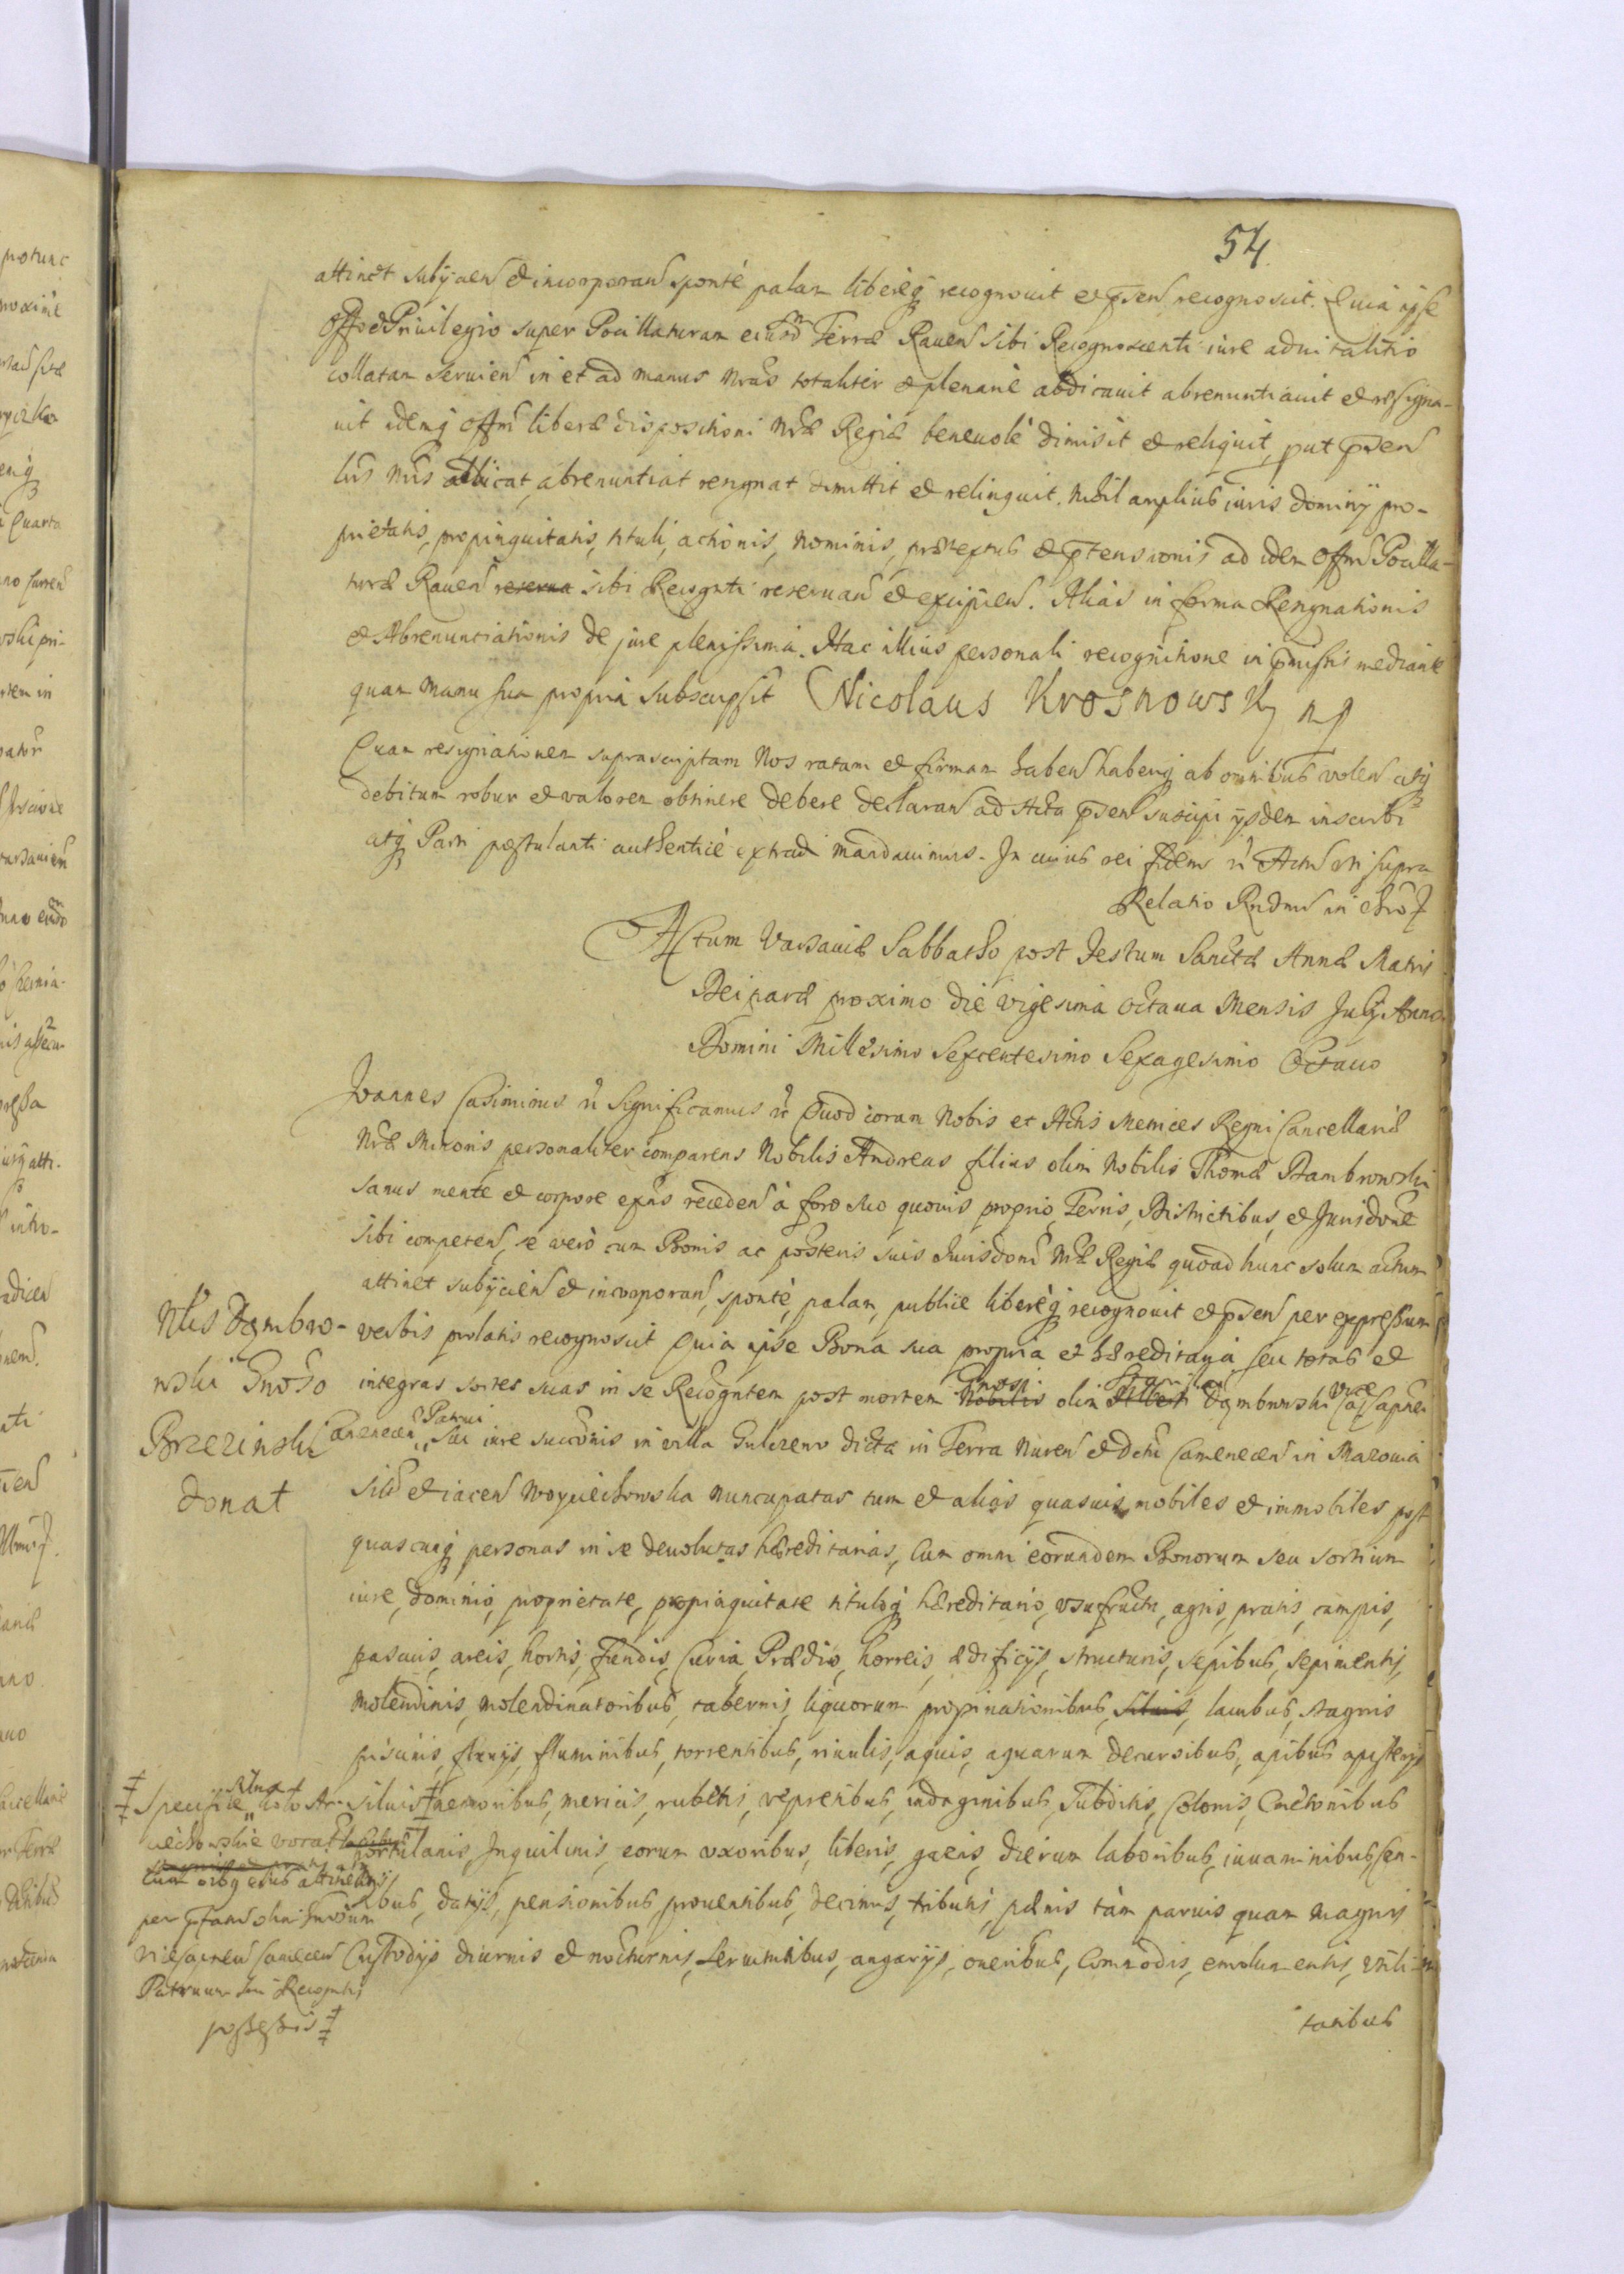 54
attinet subÿcien et incorporan sponté palam liberéq recognovit et pñsen recognoscit. Quia ipse
Offo et Privilegio super Pocillaturam eiusd Terræ Raven sibi Recognoscenti iure advitalitio
collatam servien in et ad manus nrãs totaliter et plenarié abdicavit abrenuntiavit et resigna-
vit idemq Offm liberæ dispositioni nræ Regiæ benevolé dimisit et reliquit, put pñsen
lris nris abdicat abrenuntiat resignat dimittit et relinquit. Nihil amplius iuris dominÿ pro-
prietatis, propinquitatis, tituli, actionis, nominis, prætextus et ptensionis ad idem Offm Pocilla-
turæ Raven reserva sibi Recognti reservan et excipien. Alias in forma Resignationis
et Abrenunciationis de jure plenissima. Hac illius personali recognitione in pmissis mediante
quam manu sua propria subscripsit Nicolaus Krosnowsky mp
Quam resignationem suprascriptam Nos ratam et firmam haben haberiq ab omnibus volen atq
debitum robur et valorem obtinere debere declaran ad Acta pñsen suscipi ÿsdem inscribi
atq Parti postulanti authenticé extradi mandavimus. In cuius rei fidem ñ Actum uti supra
Relatio Rndmi in Chro
Actum Varsaviæ Sabbatho post Festum Sanctæ Annæ Matris
Deiparæ proximo die vigesima octava Mensis Julÿ Anno
Domini Millesimo Sexcentesimo Sexagesimo Octavo
Joannes Casimirus ñ Significamus ñ Quod coram Nobis et Actis Metrices Regni Cancellariæ
Nræ Minoris personaliter comparens Nobilis Andreas filius olim Nobilis Thomæ Dambrowski
sanus mente et corpore exñs receden á foro suo quovis proprio, Terris, Districtibus, et Jurisdone
sibi competen, se veró cum Bonis ac posteris suis Jurisdoni Nræ Regiæ quoad hunc solum actum
attinet subÿcien et incorporan, sponté, palam, publicé liberéq recognovit et pñsen per expressum
Nlis Dąmbro-
wski Gnoso
Brzezinski
donat
verbis prolatis recognoscit Quia ipse Bona sua propria et hæreditaria, seu totas et
integras sortes suas in se Recogntem post mortem Nobilis Gnosi olim Dąmbrowski Vice Capnei
Camenecen Patrui Sui iure succonis in villa Gulczewo dicta in Terra Nuren et dctu Camenecen in Mazovia
sitis et iacen Woyciechowska nuncupatas tum et alias quasvis mobiles et immobiles post
quascunq personas in se devolutas hæreditarias, Cum omni eorundem Bonorum seu sortium
iure, dominio, proprietate, propinquitate tituloq hæreditario, usufructu, agris, pratis, campis,
pascuis, areis, hortis, fundis, Curia, Prædio, horreis, ædificÿs, structuris, sepibus, sepimentis,
molendinis, molendinatoribus, tabernis, liquorum propinationibus, silvis, lacubus, stagnis
piscinis, fluvÿs, fluminibus, torrentibus, rivulis, aquis, aquarum decursibus, apibus apisterÿs
silvis nemoribus, mericis, rubetis, vepretibus, indaginibus, Subditis, Colonis, Cmetonibus
hortulanis, Inquilinis, eorum uxoribus, liberis, gazis, dierum laboribus, iuvaminibus, Cen-
sibus, datÿs, pensionibus, proventibus, decimis, tributis, pænis tám parvis quam magnis
Custodÿs diurnis et nocturnis, servitutibus, angarÿs, oneribus, Commodis, emolumentis, utili-
tatibus
Specifice Silva
ciechowskie vocat
Cum oibq eius attinentÿs
per pfatum olim Gnosum
Vicecapneu Camecen
Patruum sui Recogntis
possessis